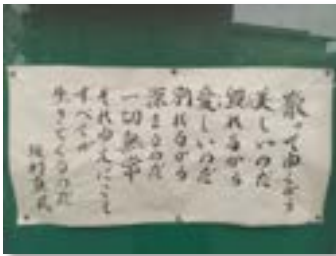 散ってゆくから
美しいのだ
毀れるから
愛しいのだ
別れるから
深まるのだ
一切無常
それゆえにこそ
すべてが
生きてくるのだ
坂村真民